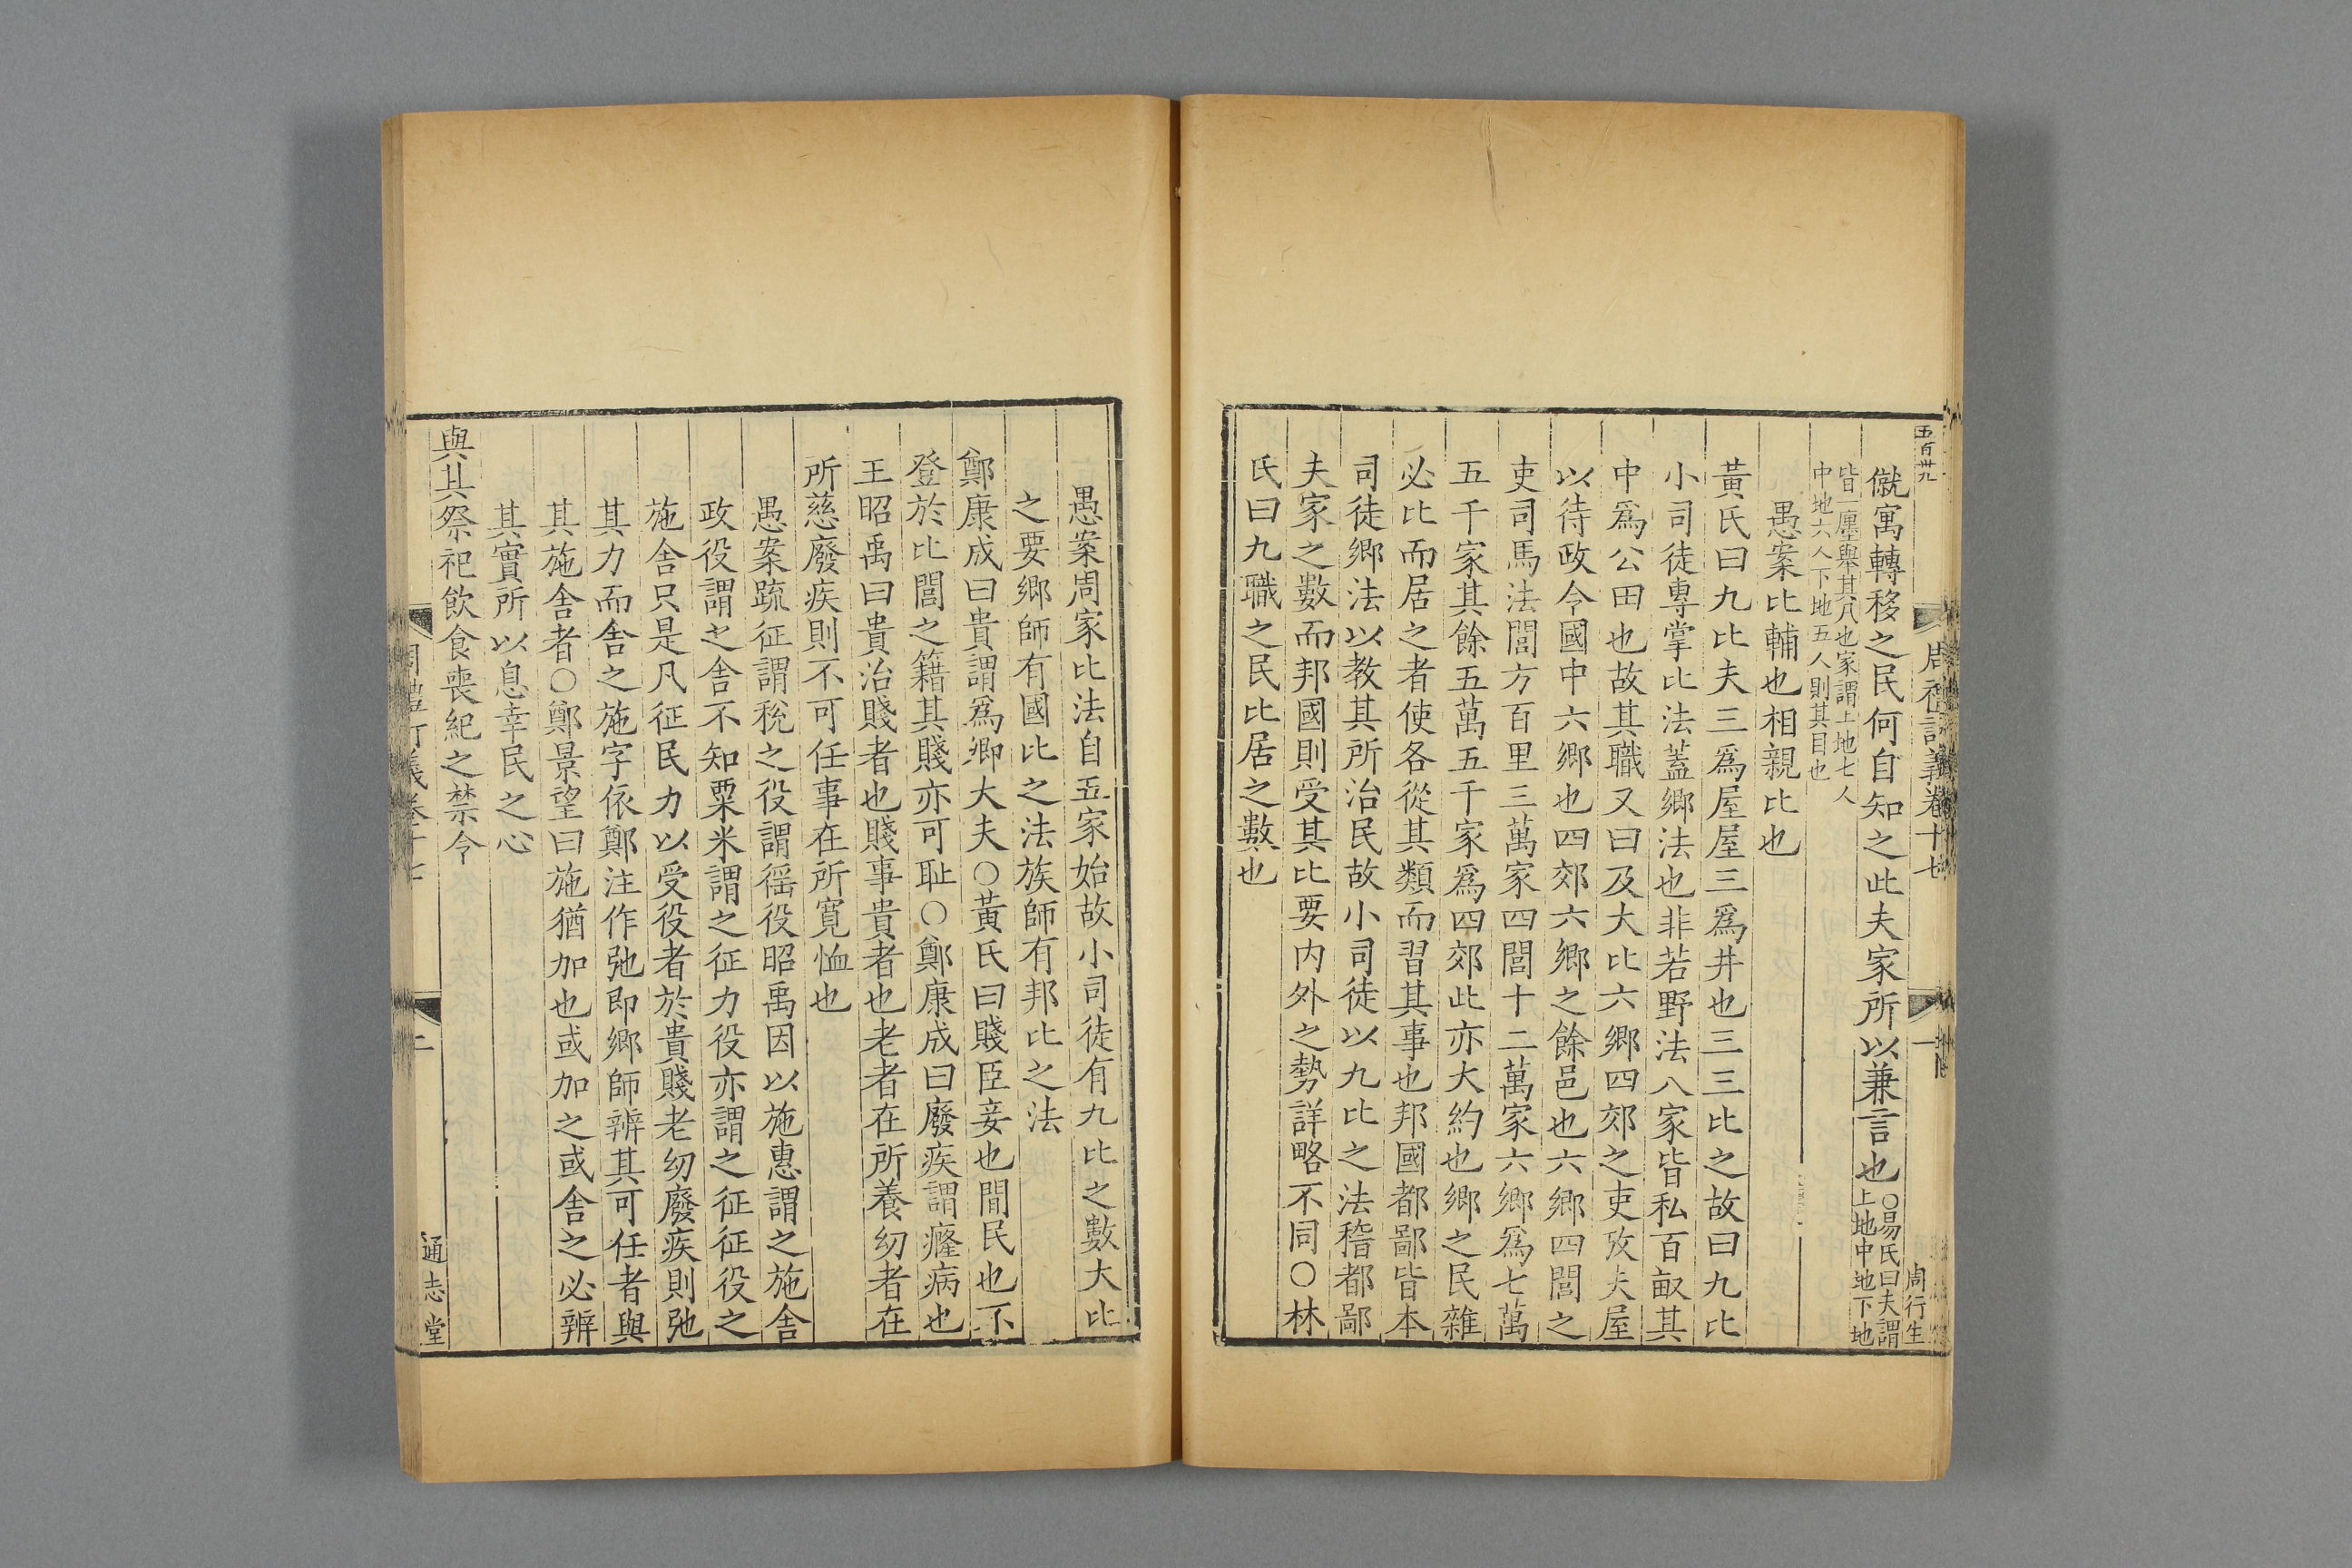 五百卅九
周禮訂義卷十七
一
周行生
僦寓轉移之民何自知之此夫家所以兼言也○易氏曰夫謂上地中地下地
皆一廛舉其凡也家謂上地七人
中地六人下地五人則其目也
愚案比輔也相親比也
黃氏曰九比夫三爲屋屋三爲井也三三比之故曰九比
小司徒專掌比法蓋鄉法也非若野法八家皆私百畝其
中爲公田也故其職又曰及大比六鄉四郊之吏攷夫屋
以待政令國中六鄉也四郊六鄉之餘邑也六鄉四閭之
吏司馬法閭方百里三萬家四閭十二萬家六鄉爲七萬
五千家其餘五萬五千家爲四郊此亦大約也鄉之民雜
必比而居之者使各從其類而習其事也邦國都鄙皆本
司徒鄉法以教其所治民故小司徒以九比之法稽都鄙
夫家之數而邦國則受其比要内外之勢詳略不同○林
氏曰九職之民比居之數也
愚案周家比法自五家始故小司徒有九比之數大比
之要鄉師有國比之法族師有邦比之法
鄭康成曰貴謂爲卿大夫○黃氏曰賤臣妾也閒民也不
登於比閭之籍其賤亦可耻○鄭康成曰廢疾謂癃病也
王昭禹曰貴治賤者也賤事貴者也老者在所養幼者在
所慈廢疾則不可任事在所寬恤也
愚案疏征謂稅之役謂徭役昭禹因以施惠謂之施舍
政役謂之舍不知粟米謂之征力役亦謂之征征役之
施舍只是凡征民力以受役者於貴賤老幼廢疾則弛
其力而舍之施字依鄭注作弛即鄉師辨其可任者與
其施舍者○鄭景望曰施猶加也或加之或舍之必辨
其實所以息幸民之心
與其祭祀飲食喪紀之禁令
周禮訂義卷十七
二
通志堂